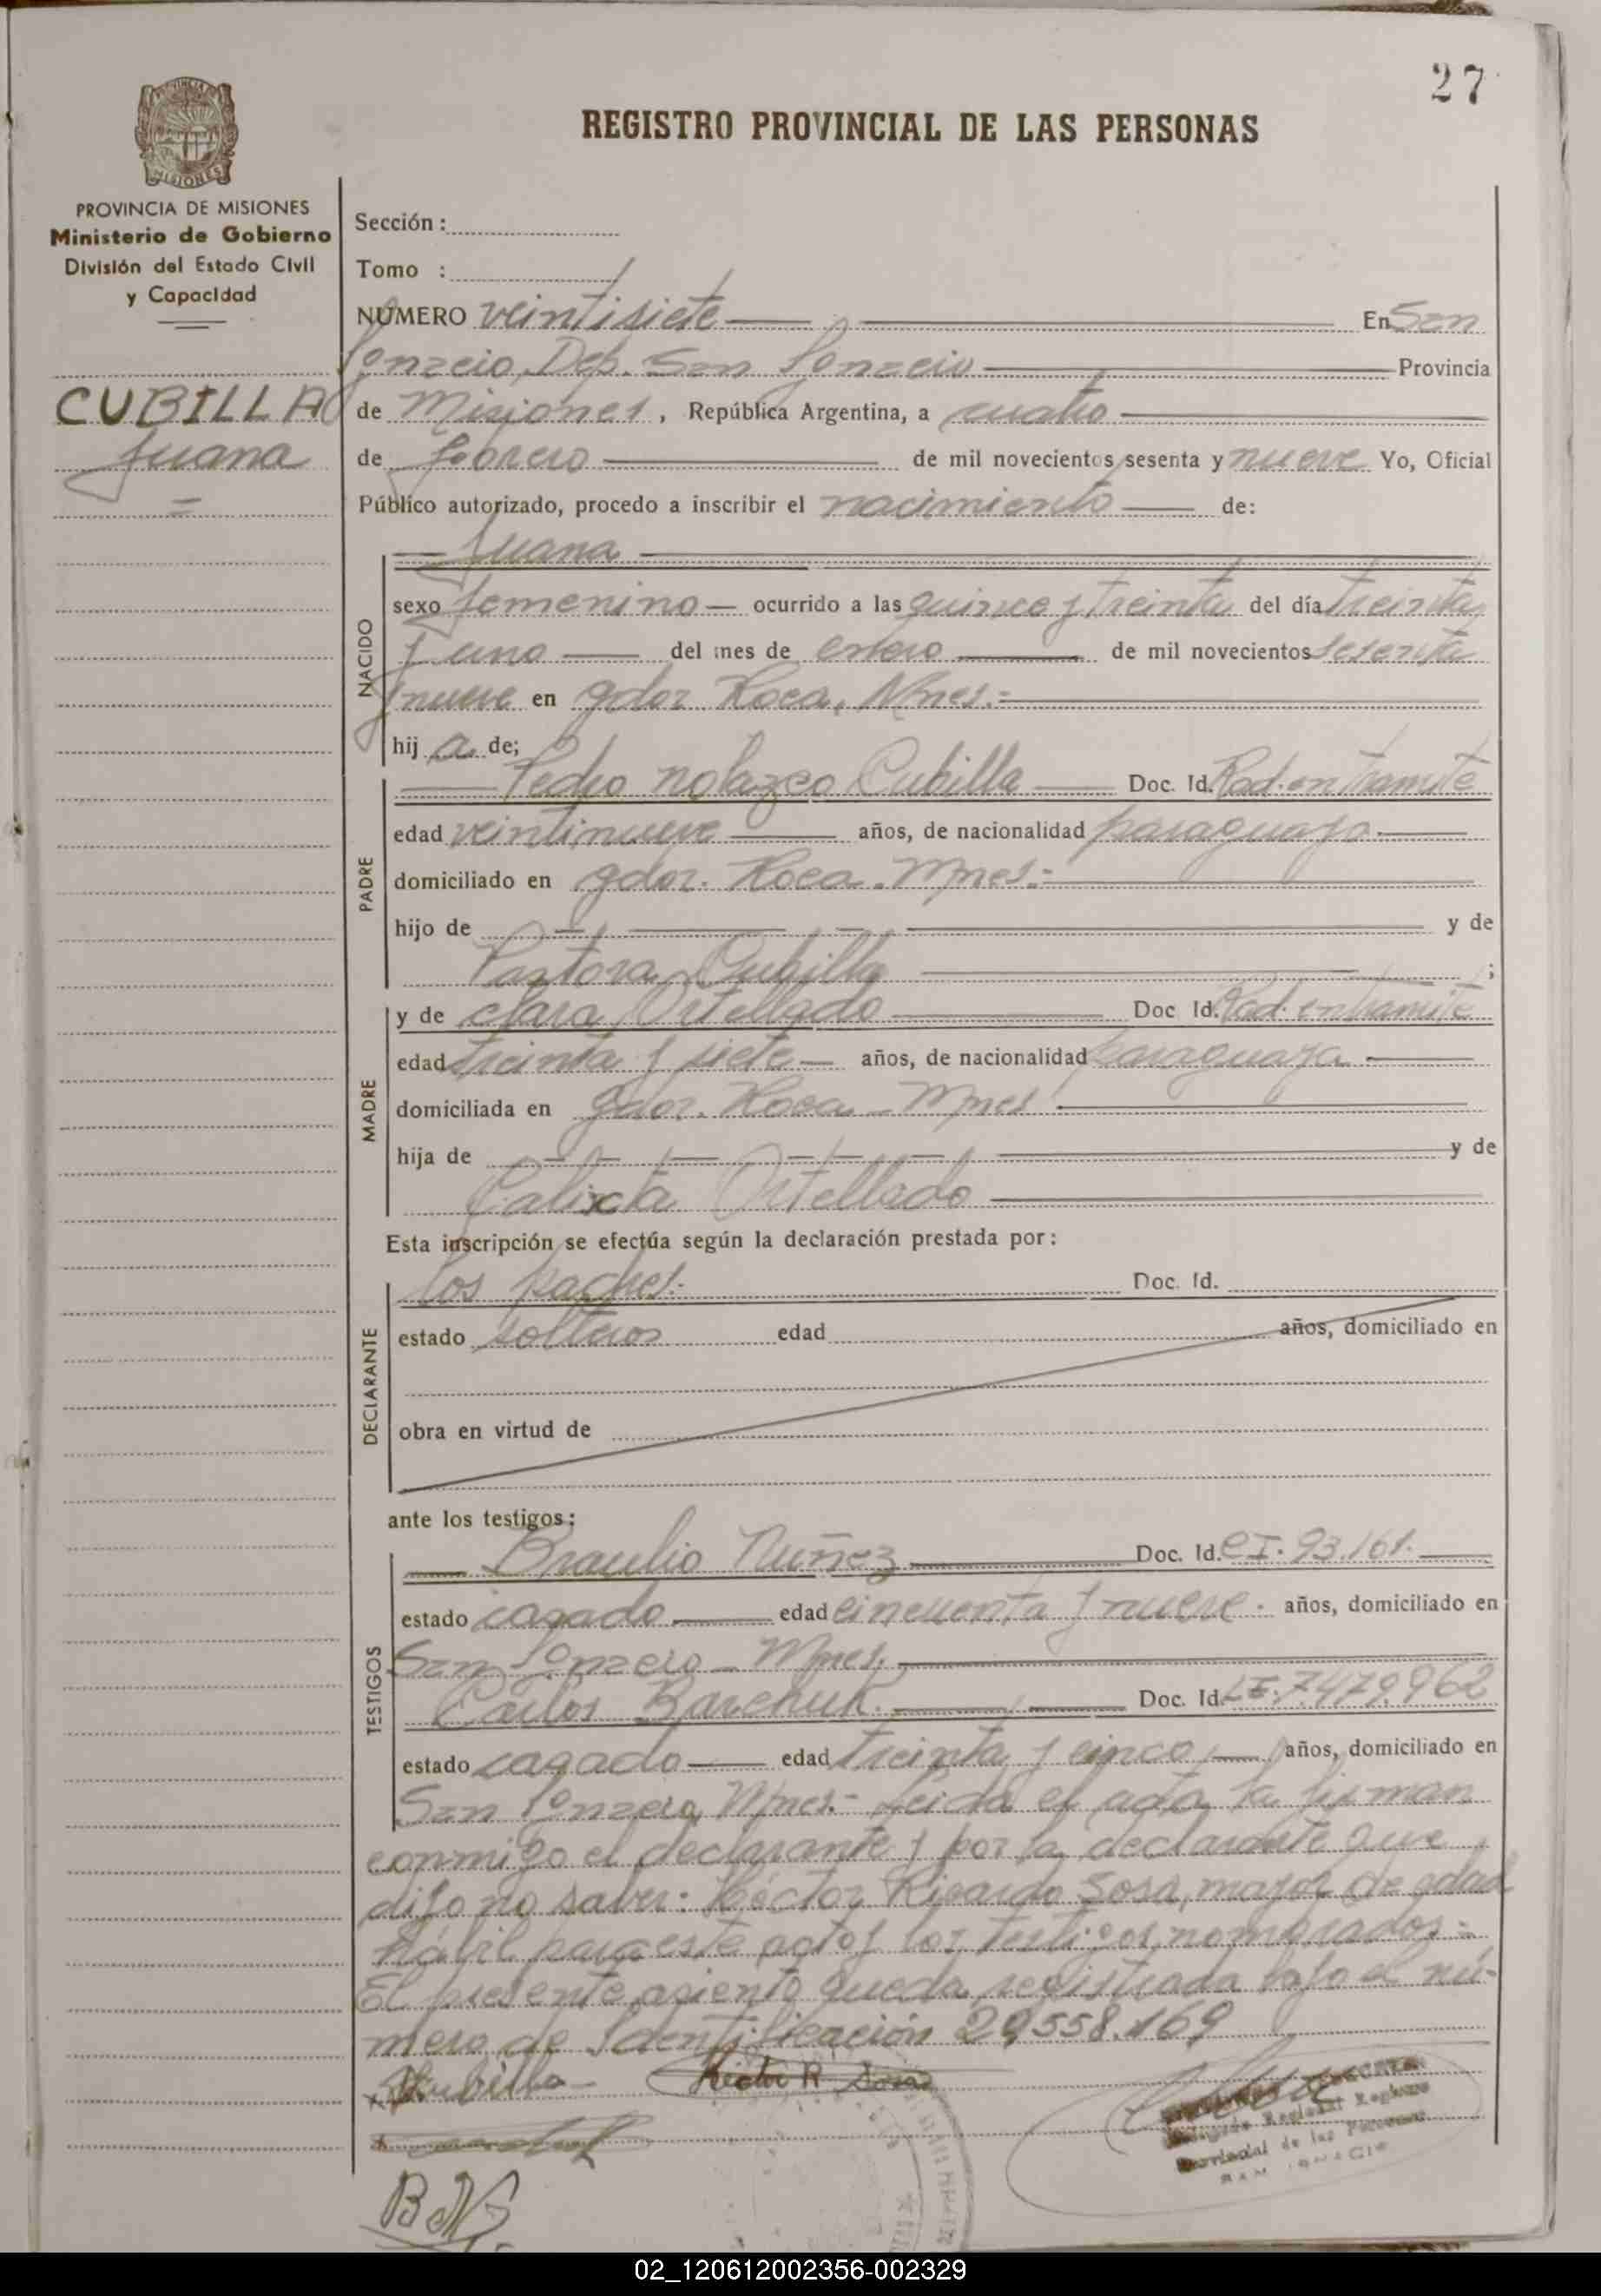 27
REGISTRO PROVINCIAL DE LAS PERSONAS
PROVINCIA DE MISIONES
Ministerio de Gobierno
División del Estado Civil
y Capacidad
CUBILLA
Juana
Sección :
Tomo :
NUMERO veintisiete En San
Ignacio, Dep. San Ignacio Provincia
de Misiones, República Argentina, a cuatro
de febrero de mil novecientos sesenta y nueve Yo, Oficial
Público autorizado, procedo a inscribir el nacimiento de:
Juana
NACIDO
sexo femenino ocurrido a las quince y treinta del día treinta
y uno del mes de enero de mil novecientos sesenta
y nueve en gdor. Roca, Mnes.
hij a de;
Pedro Nolazco Cubilla Doc. Id. Rad. en tramite
PADRE
edad veintinueve años, de nacionalidad paraguayo
domiciliado en gdor. Roca. Mnes.
hijo de y de
Pastora Cubilla ;
MADRE
y de Clara Ortellado Doc Id. Rad. en tramite
edad treinta y siete años, de nacionalidad paraguaya
domiciliada en gdor. Roca - Mnes
hija de y de
Calixta Ortellado
Esta inscripción se efectúa según la declaración prestada por:
DECLARANTE
los padres. Doc. Id.
estado solteros edad años, domiciliado en
obra en virtud de
ante los testigos:
TESTIGOS
Braulio Nuñez Doc. Id. CI. 93.161.
estado casado edad cincuenta y nueve años, domiciliado en
San Ignacio - Mnes.
Carlos Barchuk. Doc. Id. LE. 7479962
estado casado edad treinta y cinco años, domiciliado en
San Ignacio, Mnes.- Leida el acta la firman
conmigo el declarante y por la declarante que
dijo no saber: Héctor Ricardo Sosa, mayor de edad
hábil para este acto y los testigos nombrados.-
El presente asiento queda registrada bajo el nú-
mero de Identificación 20.558.169
Cubilla
Hector R. Sosa
Delegado Regional Registro
Provincial de las Personas
SAN IGNACIO
02_120612002356-002329